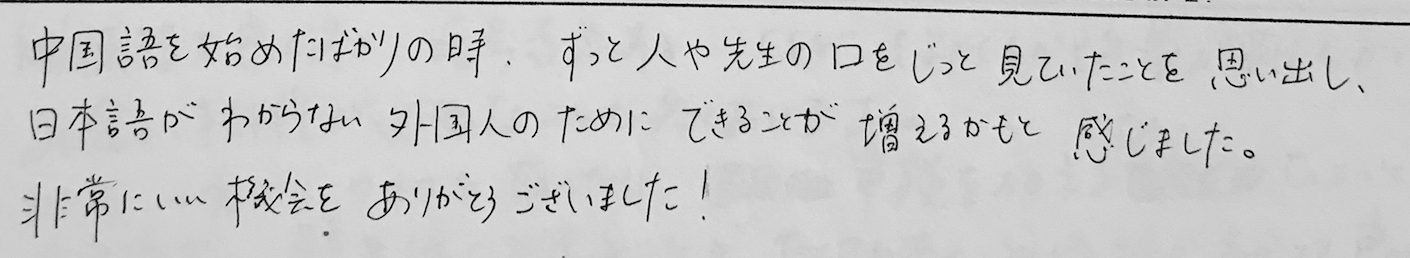 中国語を始めたばかりの時、ずっと人や先生の口をじっと見ていたことを思い出し、
日本語がわからない外国人のためにできることが増えるかもと感じました。
非常にいい機会をありがとうございました!